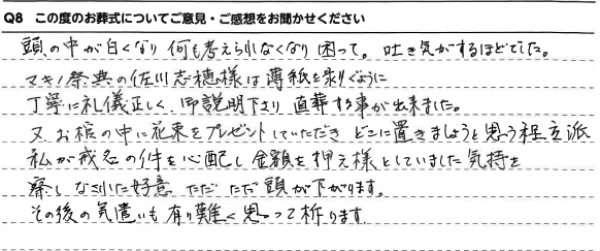 Q8 この度のお葬式についてご意見・ご感想をお聞かせください
頭の中が白くなり 何も考えられなくなり 困って。吐き気がするほどでした。
マキノ祭典の佐川志穂様は薄紙を剥ぐように
丁寧に礼儀正しく、御説明下さり 直葬する事が出来ました。
又 お棺の中に花束をプレゼントしていただき どこに置きましょうと思う程立派
私が戒名の件を心配し 金額を押え様としていました気持を
察し なされた好意 ただ ただ 頭が下がります。
その後の気遣いも有り難く思って祈ります